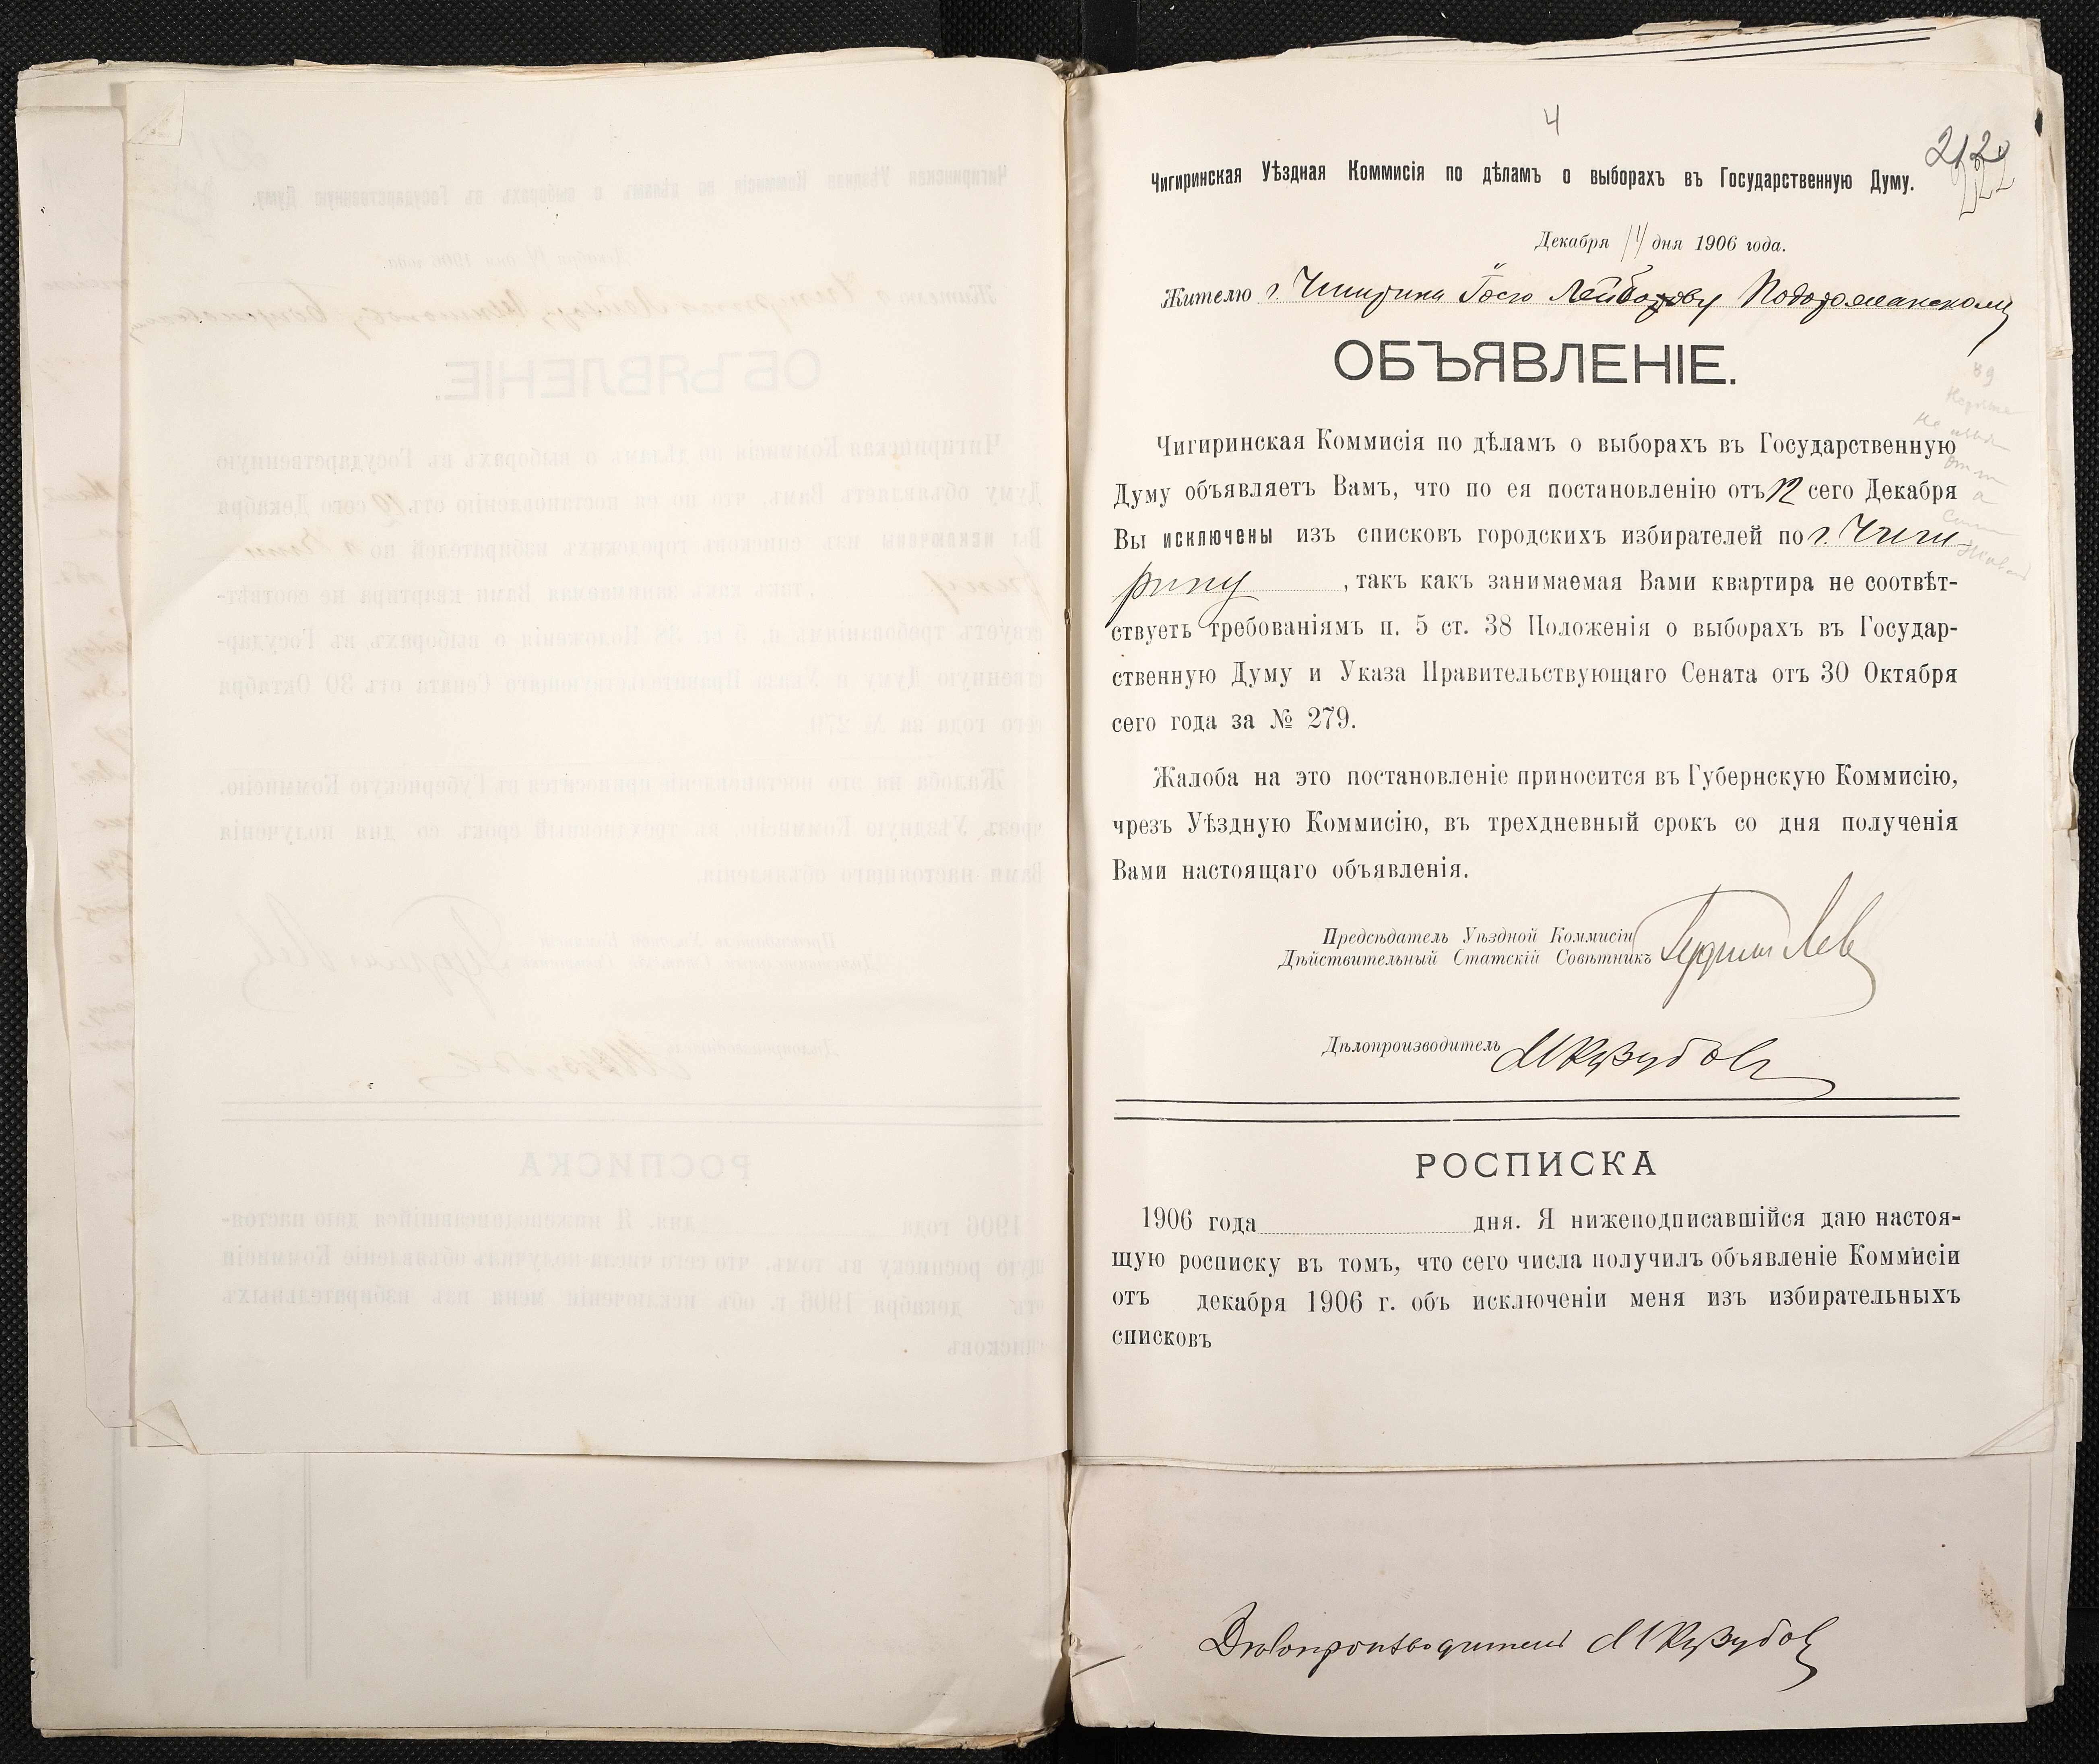 4
Чигиринская Уѣздная Коммисія по дѣламъ о выборахъ въ Государственную Думу.
Декабря 14 дня 1906 года.
Жителю г. Чигирина Лейбову Подорожанскому
ОБЪЯВЛЕНІЕ.
Чигиринская Коммисія по дѣламъ о выборахъ въ Государственную
Думу объявляетъ Вамъ, что по ея постановленію отъ 12 сего Декабря
Вы исключены изъ списковъ городскихъ избирателей по г. Чиги-
рину, такъ какъ занимаемая Вами квартира не соотвѣт-
ствуетъ требованіямъ п. 5 ст. 38 Положенія о выборахъ въ Государ-
ственную Думу и Указа Правительствующаго Сената отъ 30 Октября
сего года за № 279.
Жалоба на это постановленіе приносится въ Губернскую Коммисію,
чрезъ Уѣздную Коммисію, въ трехдневный срокъ со дня полученія
Вами настоящаго объявленія.
Предсѣдатель Уѣздной Коммисіи
Дѣйствительный Статскій Совѣтникъ
Дѣлопроизводитель
РОСПИСКА
1906 года дня. Я нижеподписавшійся даю настоя-
щую росписку въ томъ, что сего числа получилъ объявленіе Коммисіи
отъ декабря 1906 г. объ исключеніи меня изъ избирательныхъ
списковъ
Дѣлопроизводитель